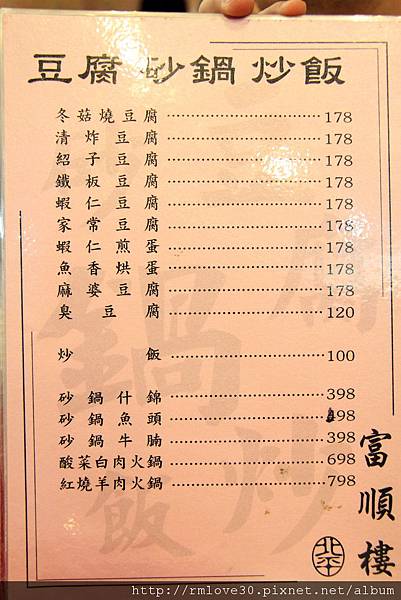 豆腐 砂鍋 炒飯
冬菇燒豆腐 178
清炸豆腐 178
紹子豆腐 178
鐵板豆腐 178
蝦仁豆腐 178
家常豆腐 178
蝦仁煎蛋 178
魚香烘蛋 178
麻婆豆腐 178
臭豆腐 120
炒飯 100
砂鍋什錦 398
砂鍋魚頭 498
砂鍋牛腩 398
酸菜白肉火鍋 698
紅燒羊肉火鍋 798
富順樓
北平
http://rmlove30.pixnet.net/album